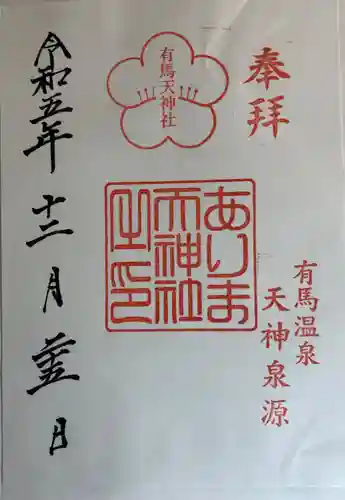 奉拝
有馬温泉
天神泉源
有馬天神社
ありま
天神社
之印
令和五年 十二月 廿五日